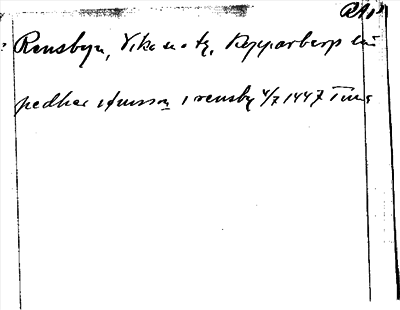 RAp
Rensbyn, Vika sn o tg, Kopparbergs län
pedhar jönsson i rensby 4/7 1447 Tuna